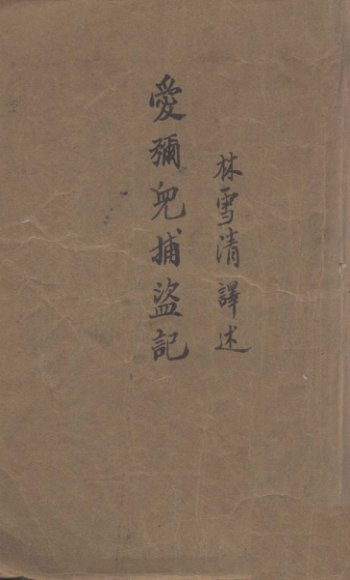 林雪清譯述
愛彌兒捕盜記